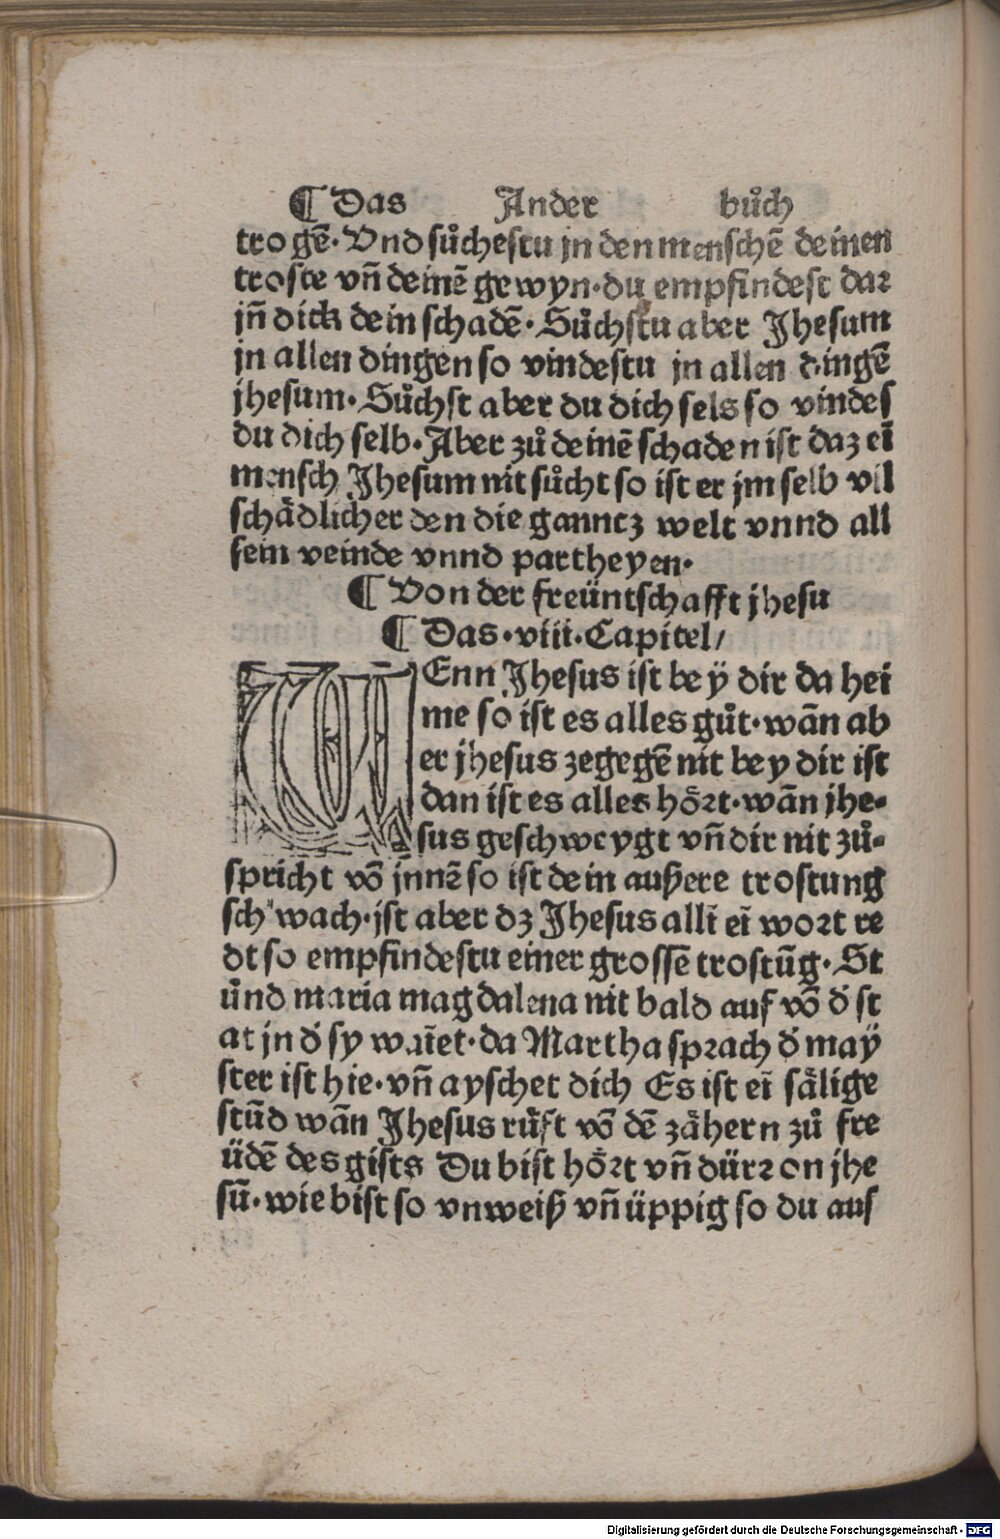 ¶ Das Ander bůch
trogē· Vnd sůchestu jn den menschē deinen
troste vñ deinē gewyn· du empfindest dar
jñ dick dein schadē· Sůchstu aber Jhesum
jn allen dingen so vindestu jn allen dingē
jhesum· Sůchst aber du dich sels so vindes
du dich selb· Aber zů deinē schaden ist daz eī
mensch Jhesum nit sůcht so ist er jm selb vil
schådlicher den die ganncz welt vnnd all
sein veinde vnnd partheyen·
¶ Von der freüntschafft jhesu
¶ Das· viii· Capitel/
WEnn Jhesus ist bey̋ dir da hei
me so ist es alles gůt· wān ab
er jhesus zegegē nit bey dir ist
dan ist es alles hört· wān jhe-
sus geschweygt vñ dir nit zů-
spricht vō jnnē so ist dein außere trostung
schwach· jst aber dz Jhesus allī eī wort re
dt so empfindestu einer grossē trostūg· St
ůnd maria magdalena nit bald auf vō d̄ st
at jn d̄ sy waīet· da Martha sprach d̄ maÿ
ster ist hie· vñ ayschet dich Es ist eī sålige
stūd wān Jhesus růft vō dē zåhern zů fre
üdē des gists Du bist hört vñ dürr on jhe
sū· wie bist so vnweiß vñ üppig so du aus
Digitalisierung gefördert durch die Deutsche Forschungsgemeinschaft - DFG